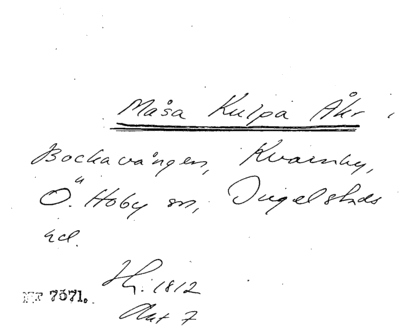 Måsa Kulpa Åkr
Bockavången, Kvarnby,
Ö. Hoby sn, Ingelstads
hd.
Hr. 1812
Akt 7
7571.